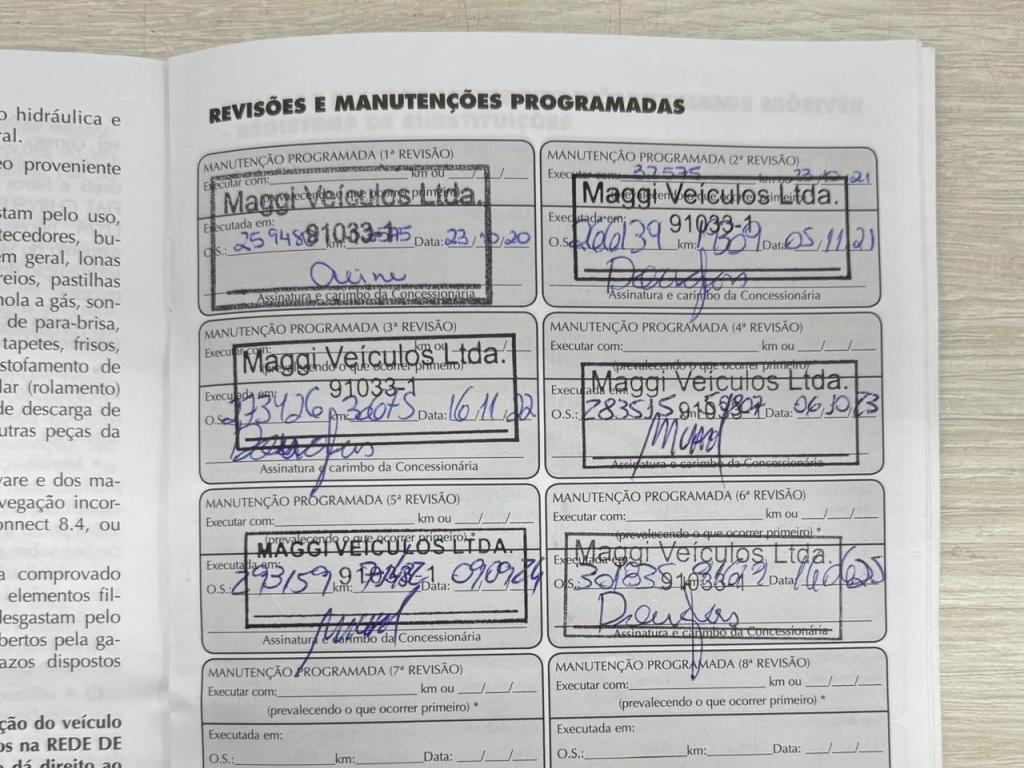 o hidráulica e
ral.
eo proveniente
stam pelo uso,
tecedores, bu-
em geral, lonas
reios, pastilhas
nola a gás, son-
de para-brisa,
tapetes, frisos,
stofamento de
lar (rolamento)
de descarga de
utras peças da
vare e dos ma-
vegação incor-
onnect 8.4, ou
a comprovado
elementos fil-
desgastam pelo
bertos pela ga-
azos dispostos
ção do veículo
os na REDE DE
dá direito ao
REVISÕES E MANUTENÇÕES PROGRAMADAS
MANUTENÇÃO PROGRAMADA (1ª REVISÃO)
Executar com: km ou __/__/__
Maggi Veículos Ltda.
Executada em:
91033-1
O.S.: km: Data: 23/10/20
Assinatura e carimbo da Concessionária
MANUTENÇÃO PROGRAMADA (2ª REVISÃO)
37575 21
Maggi Veículos Ltda.
Executada em:
91033-1
O.S.: 266139 km: Data: 05/11/21
Douglas
Assinatura e carimbo da Concessionária
MANUTENÇÃO PROGRAMADA (3ª REVISÃO)
Executar com: km ou
Maggi Veículos Ltda.
(prevalecendo o que ocorrer primeiro)
Executada em:
91033-1
O.S.: 273426 km: Data: 16/11/22
Douglas
Assinatura e carimbo da Concessionária
MANUTENÇÃO PROGRAMADA (4ª REVISÃO)
Executar com: km ou __/__/__
(prevalecendo o que ocorrer primeiro)
Maggi Veículos Ltda.
Executada em:
91033-1
O.S.: 283515 Data: 06/10/23
Assinatura e carimbo da Concessionária
MANUTENÇÃO PROGRAMADA (5ª REVISÃO)
Executar com: km ou __/__/__
(prevalecendo o que ocorrer primeiro) *
MAGGI VEÍCULOS LTDA.
Executada em:
91033-1
O.S.: 293159 km: Data: 09/09/24
Assinatura e carimbo da Concessionária
MANUTENÇÃO PROGRAMADA (6ª REVISÃO)
Executar com: km ou __/__/__
(prevalecendo o que ocorrer primeiro) *
Maggi Veículos Ltda.
Executada em:
91033-1
O.S.: 301835 Data:
Douglas
Assinatura e carimbo da Concessionária
MANUTENÇÃO PROGRAMADA (7ª REVISÃO)
Executar com: km ou __/__/__
(prevalecendo o que ocorrer primeiro) *
Executada em:
O.S.: km: Data: __/__/__
MANUTENÇÃO PROGRAMADA (8ª REVISÃO)
Executar com: km ou __/__/__
(prevalecendo o que ocorrer primeiro) *
Executada em:
O.S.: km: Data: __/__/__